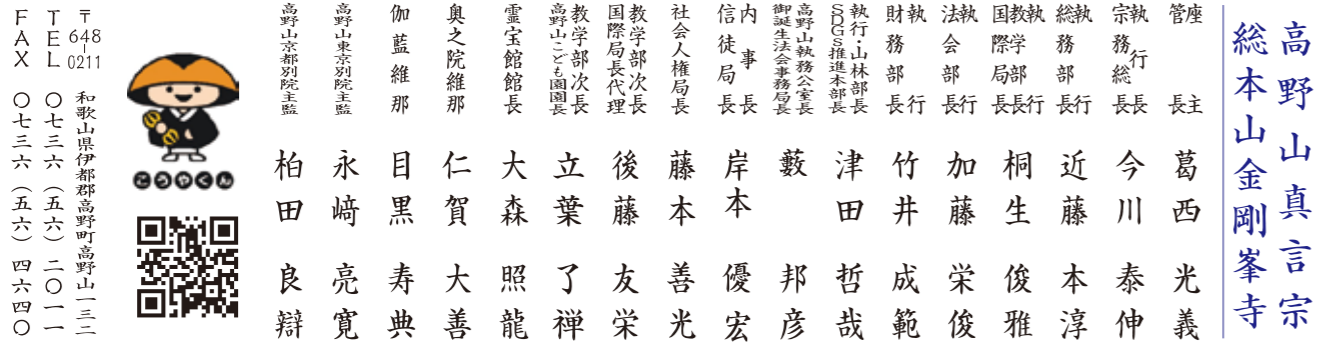 高野山真言宗
総本山金剛峯寺
座主
管長
葛西光義
執行長
宗務総長
今川泰伸
執行
総務部長
近藤本淳
執行
教学部長
国際局長
桐生俊雅
執行
法会部長
加藤栄俊
執行
財務部長
竹井成範
執行・山林部長
SDGs推進本部長
津田哲哉
高野山執務公室長
御誕生法会事務局長
藪邦彦
内事長
信徒局長
岸本優宏
社会人権局長
藤本善光
教学部次長
国際局長代理
後藤友栄
教学部次長
高野山こども園園長
立葉了禅
霊宝館館長
大森照龍
奥之院維那
仁賀大善
伽藍維那
目黒寿典
高野山東京別院主監
永﨑亮寛
高野山京都別院主監
柏田良辯
こうやくん
〒648-0211 和歌山県伊都郡高野町高野山一三二
TEL 〇七三六(五六)二〇一一
FAX 〇七三六(五六)四六四〇